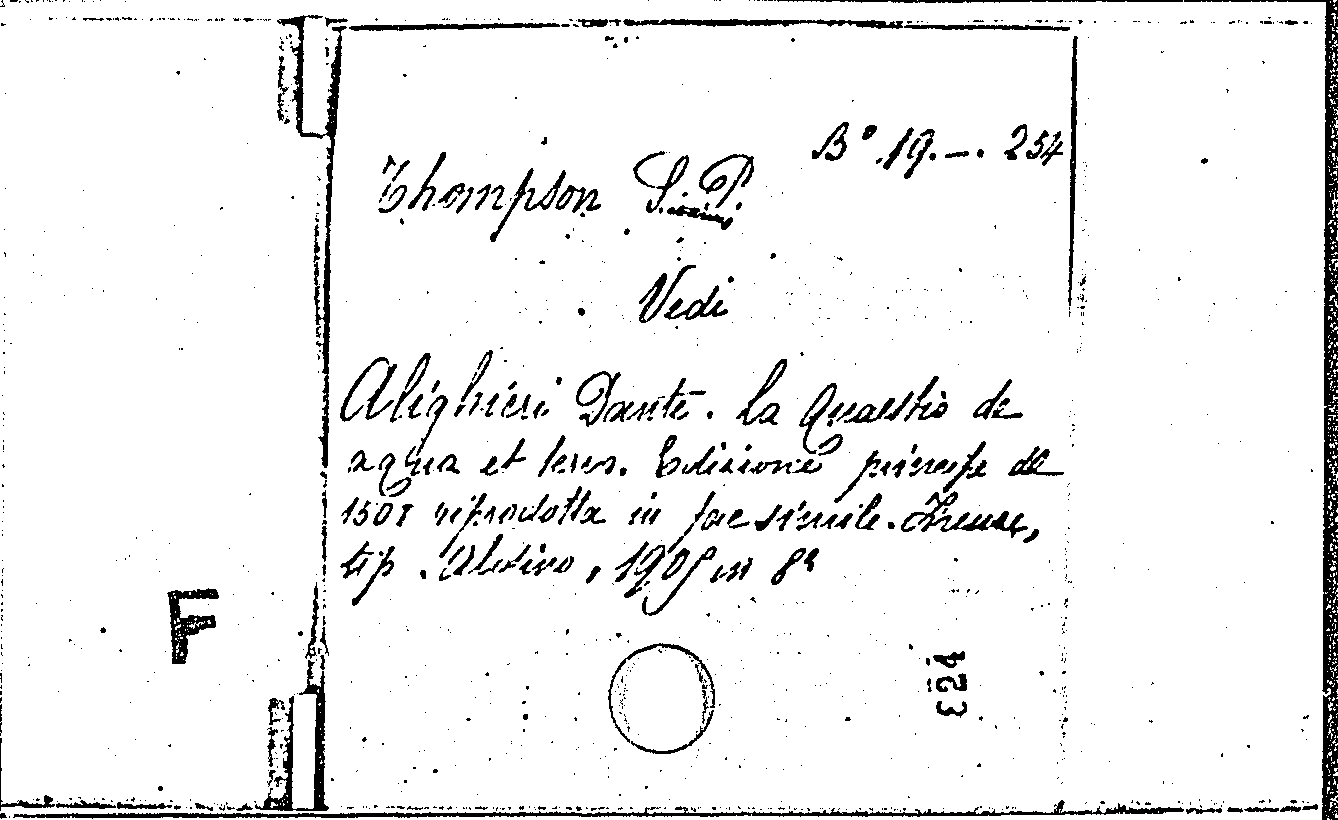 B° 19. – . 254
Thompson S. P.
Vedi
Alighieri Dante. La Quaestio de
aqua et terra. Edizione principe del
1508 riprodotta in facsimile. Firenze,
tip. 1905 in 8°
F
324